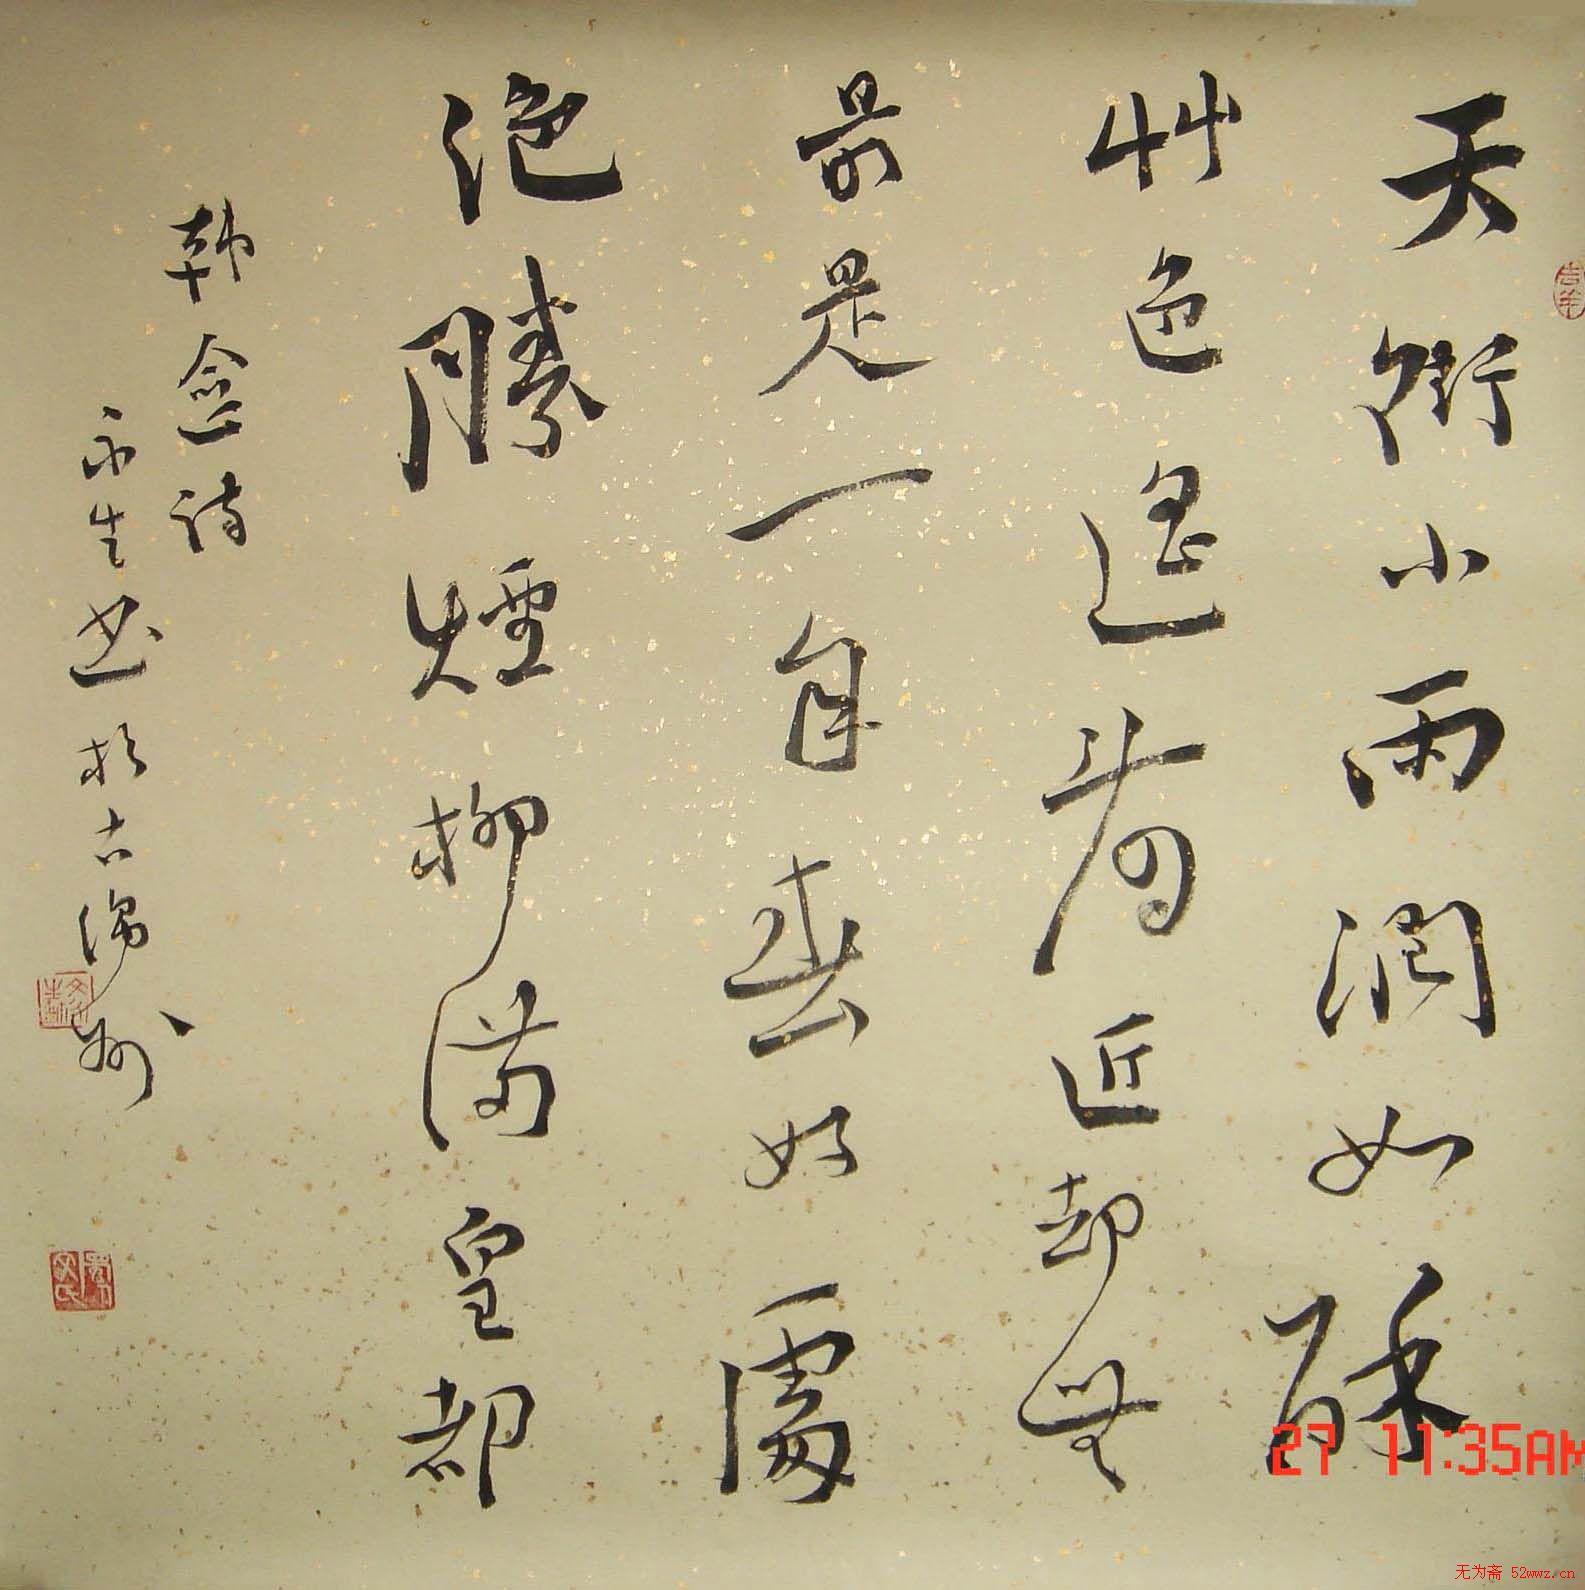 天街小雨潤如酥
艸色遥看近却無
最是一年春好處
絶勝煙柳滿皇都
韩愈诗
永生书於古绵州
27 11:35AM
无为斋 52wwz.cn